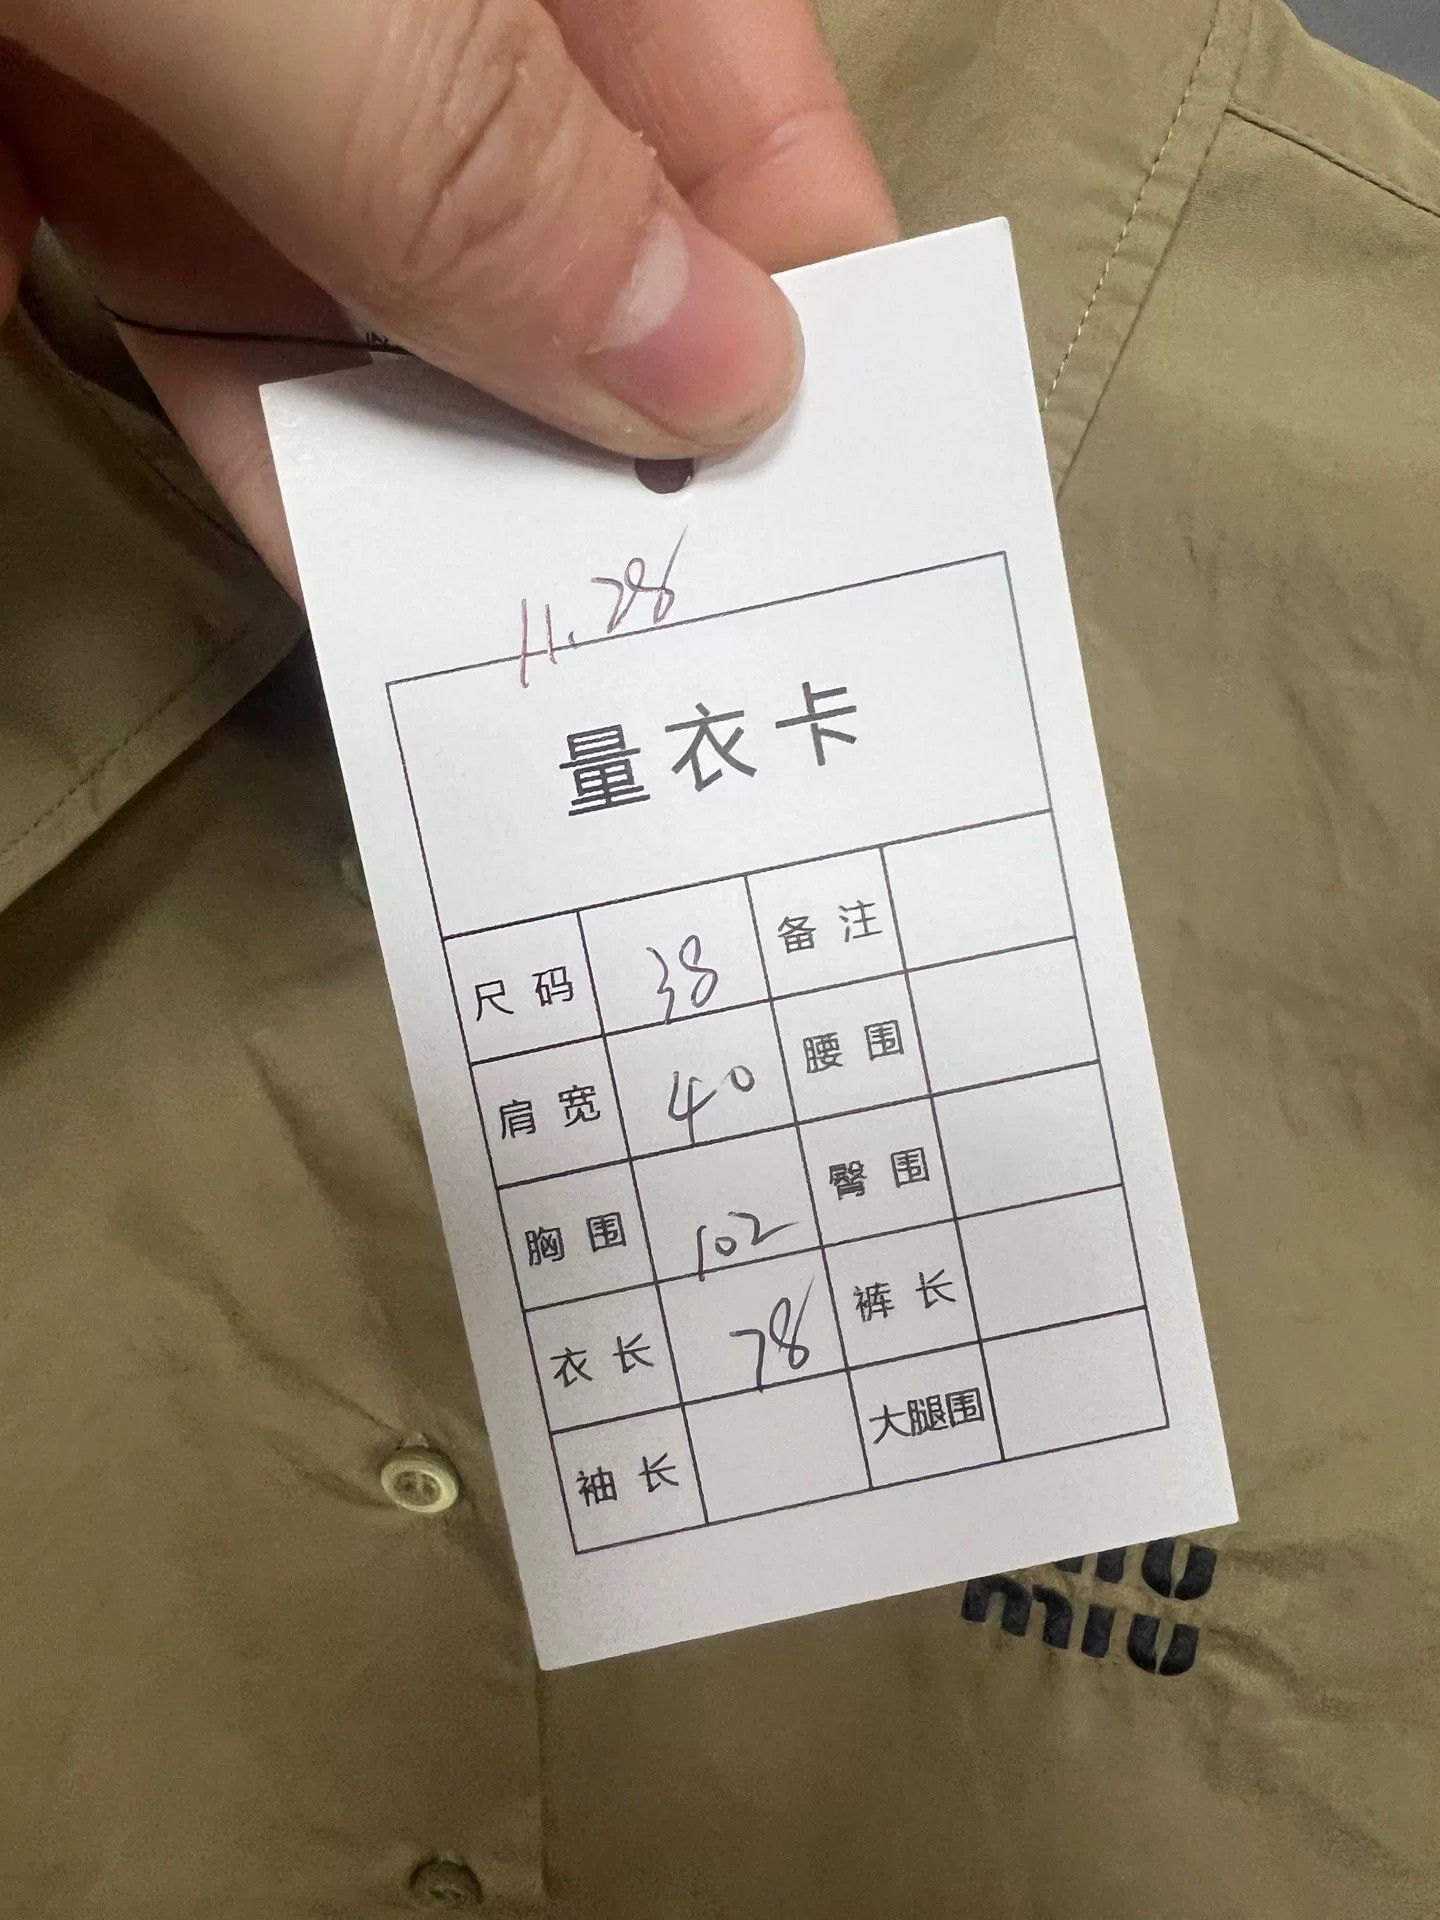 11.28
量衣卡
尺码 38 备注
肩宽 40 腰围
胸围 102 臀围
衣长 78 裤长
袖长 大腿围
miu